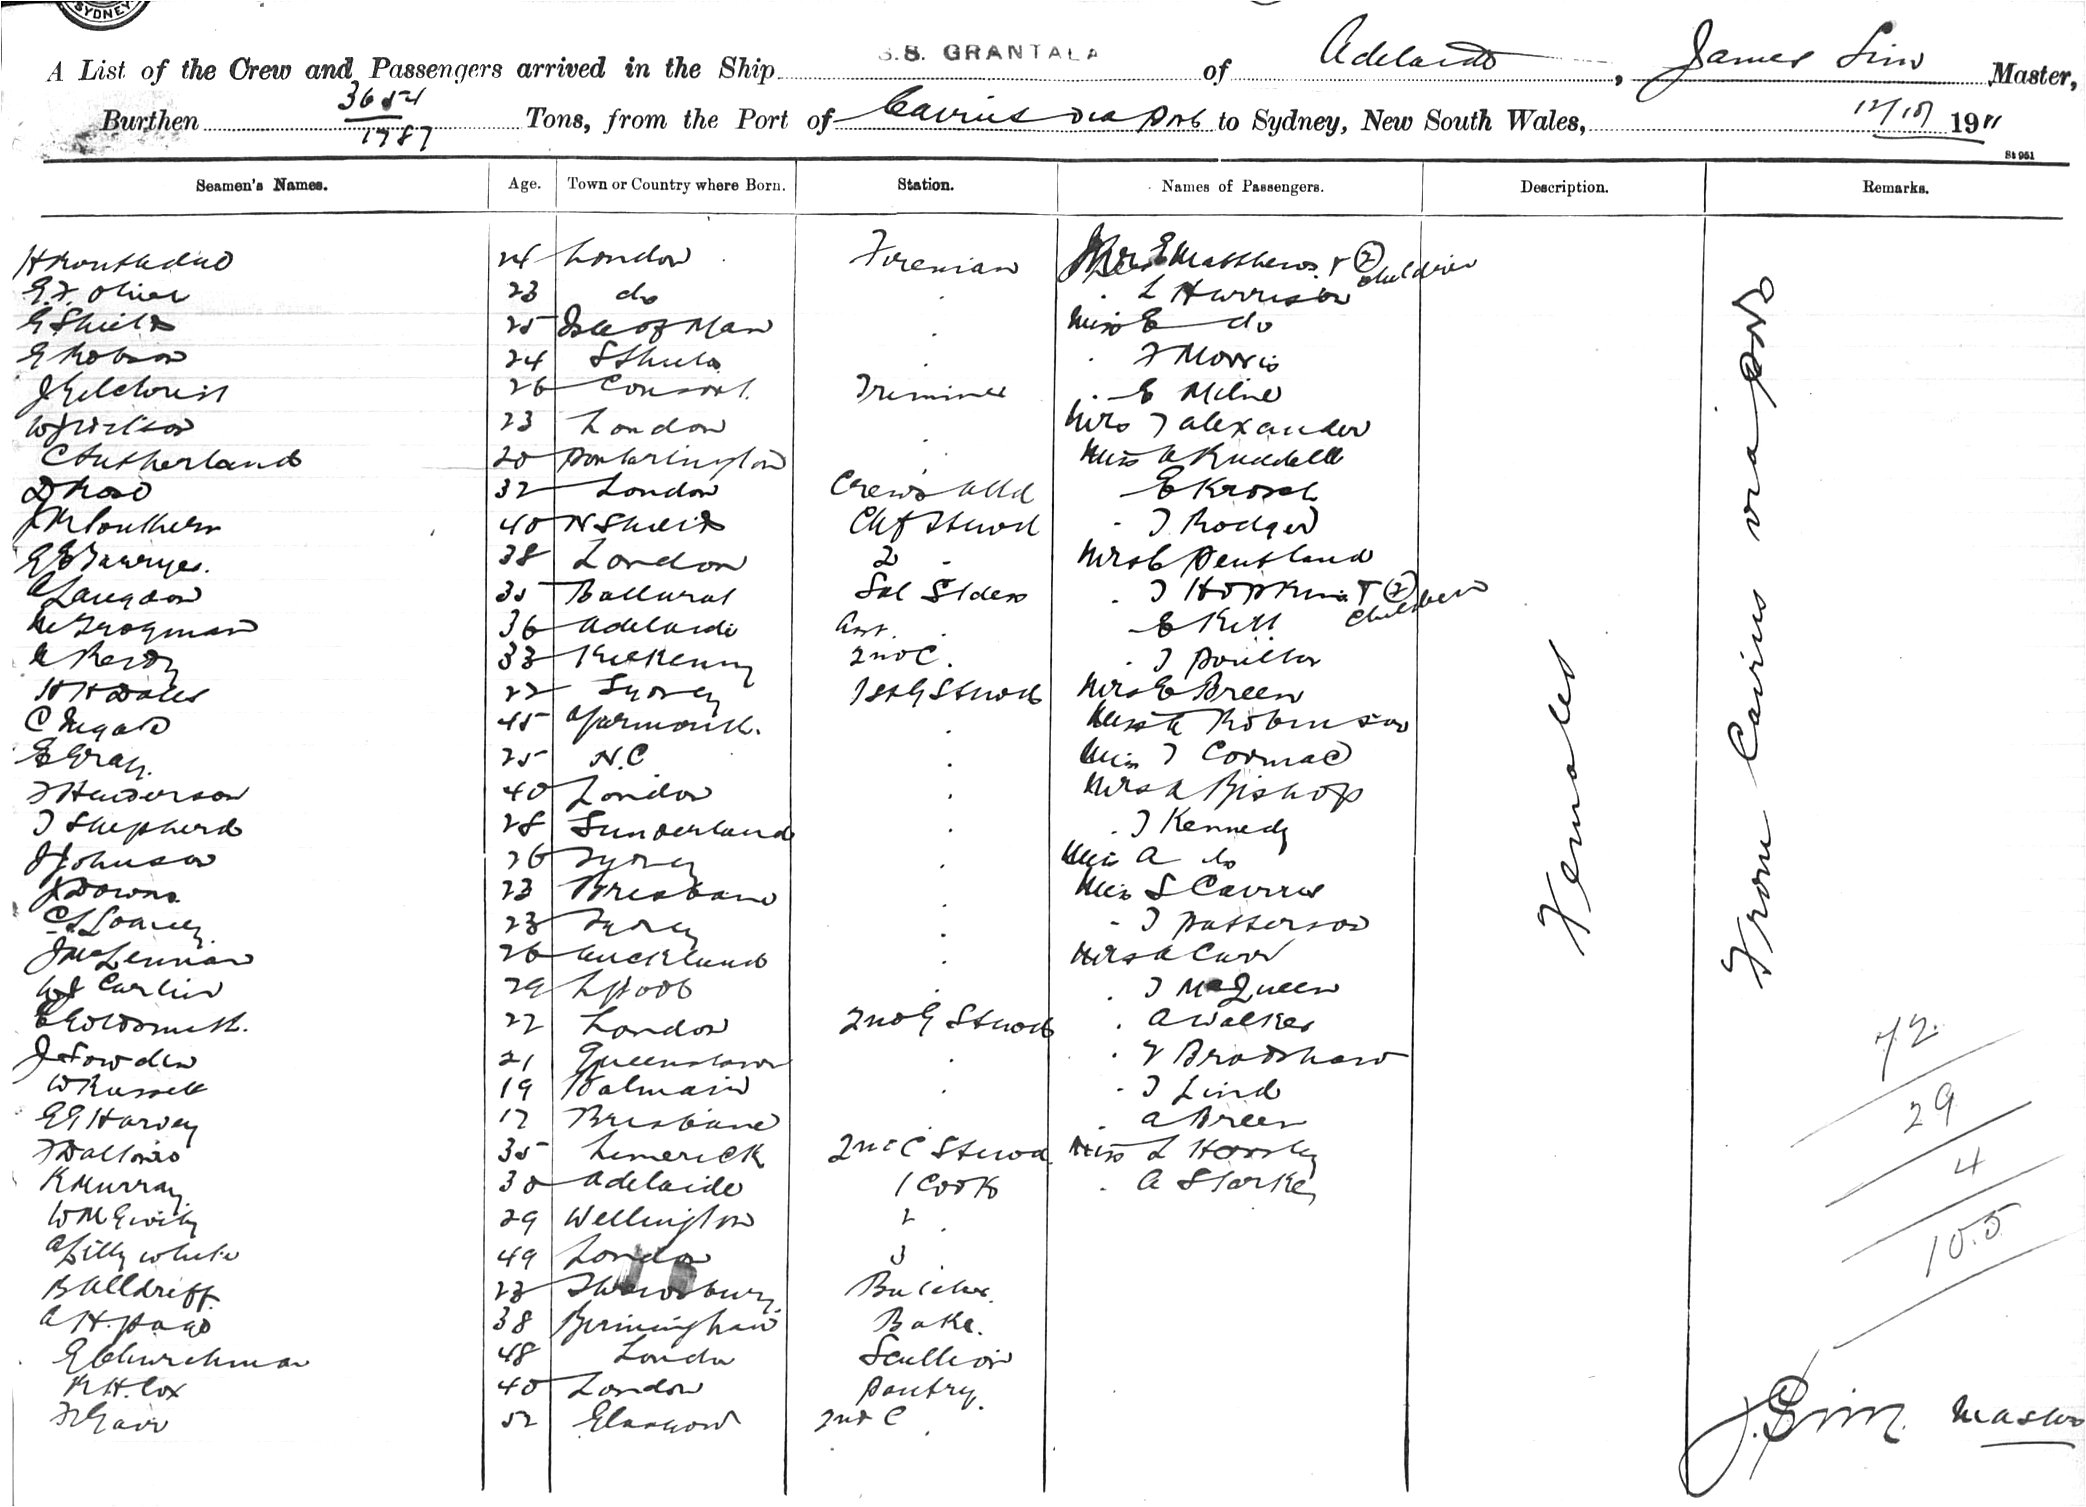 SYDNEY
A List of the Crew and Passengers arrived in the Ship S.S. GRANTALA of Adelaide, James Sim Master,
Burthen 3654 / 1787 Tons, from the Port of Cairns via Ports to Sydney, New South Wales, 1911
St 951
Seamen's Names. Age. Town or Country where Born. Station. Names of Passengers. Description. Remarks.
24 London Fireman Mrs E Matthews + 2 children
23 do " L Harrison
G Shields 25 Isle of Man " Miss E do
G Robson 24 S Shields " " F Morris
J Gilchrist 26 Trimmer " E Milne
23 London " Mrs J Alexander
C Sutherland 20 " Miss A Ruddell
D Ross 32 London Crews Attd E Krosch
J M Southern 40 N Shields Chf Stewd " J Rodger
38 London 2 " Mrs C Pentland
A Langdon 35 Ballarat " J Hopkins + 2 children
36 Adelaide Asst. " E Kill
33 Kilkenny 2nd C. " J Poulter
H H Dales 22 Sydney 1st G Stewd Mrs E Breen
45 Yarmouth. " Miss A Robinson
E Gray. 25 N.C " Miss J Cormac
J Henderson 40 London " Mrs A Bishop
J Shepherd 28 Sunderland " " J Kennedy
J Johnson 26 Sydney " Miss A do
J Downs 23 Brisbane " Miss S Cairns
23 Sydney " " J Patterson
J McLennan 26 Auckland " Mrs A Carr
W J Carlin 29 L'pool " " J McQueen
E Goldsmith. 22 London 2nd G Stewd " A Walker
J Sowden 21 Queenstown " " Bradshaw
W Russell 19 Balmain " " J Lind
G G Harvey 17 Brisbane " " A Breen
35 Limerick 2nd C Stewd. Miss L
K Murray 30 Adelaide 1 Cook " A Starkey
29 Wellington 2 "
A Lilly white 49 London 3
B Alldriff. 23 Shrewsbury. Butcher.
A H. Page 38 Birmingham Baker.
G Churchman 48 London Scullion
R H. Cox 40 London Pantry.
52 Glasgow 2nd C "
Females
From Cairns via ports
72
29
4
105
J. Sim. Master